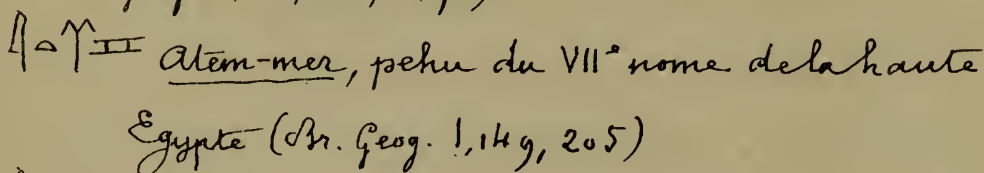 𓇋𓏏 Atem-mer, pehu du VII° nome de la haute
Egypte (Br. Geog. I, 149, 205)